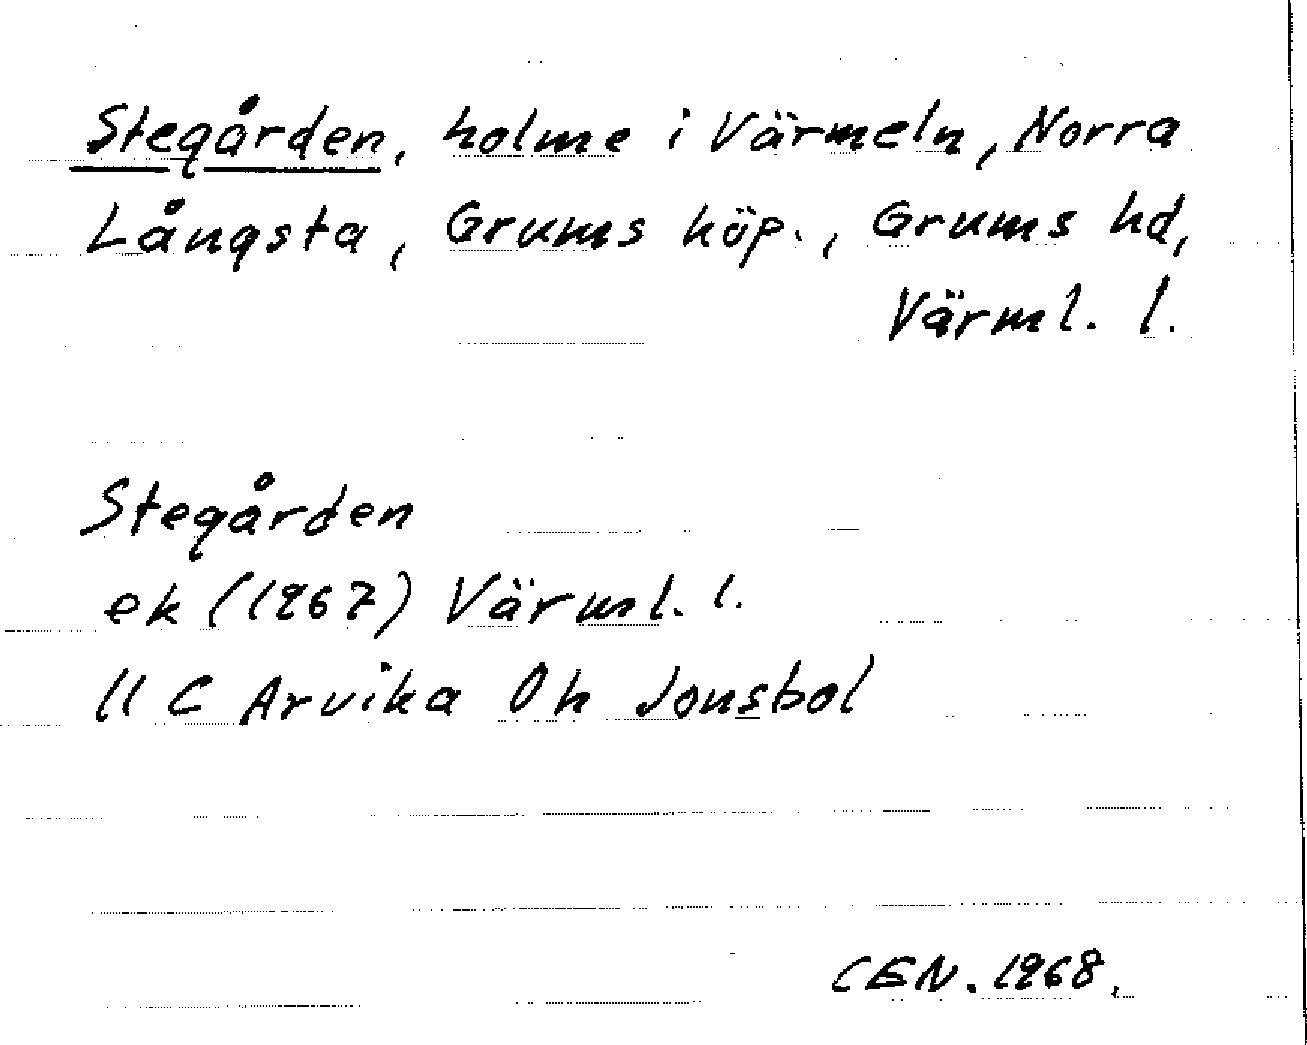 Stegården, holme i Värmeln, Norra
Långsta, Grums köp., Grums hd,
Värml. l.
Stegården
ek (1967) Värml. l.
11 C Arvika 0 h Jonsbol
CEN. 1968.